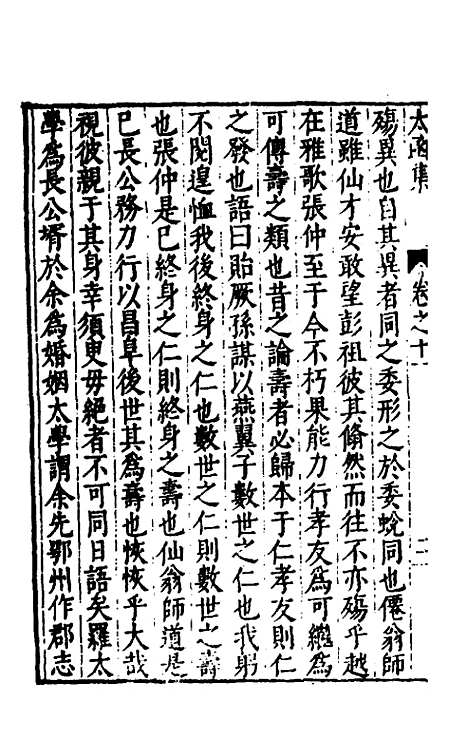 太函集
卷之十一
二
殤異也自其異者同之委形之於委蛻同也僊翁師
道雖仙才安敢望彭祖彼其翛然而往不亦殤乎越
在雅歌張仲至于今不朽果能力行孝友爲可繼爲
可傳壽之類也昔之論壽者必歸本于仁孝友則仁
之發也語曰貽厥孫謀以燕翼子數世之仁也我躬
不閱遑恤我後終身之仁也數世之仁則數世之壽
也張仲是已終身之仁則終身之壽也仙翁師道是
已長公務力行以昌阜後世其爲壽也恢恢乎大哉
視彼親于其身幸須臾毋絕者不可同日語矣羅太
學爲長公壻於余爲婚姻太學謂余先鄂州作郡志